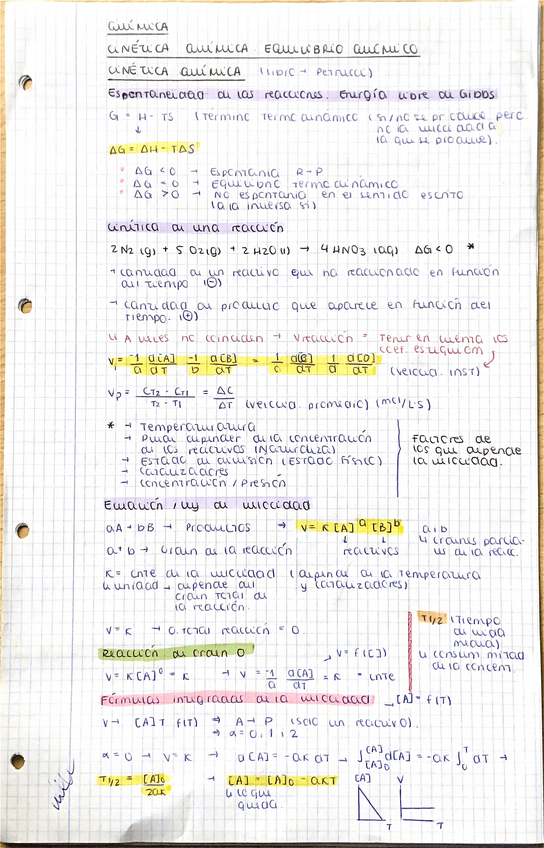 QUÍMICA
CINÉTICA QUÍMICA. EQUILIBRIO QUÍMICO
CINÉTICA QUÍMICA (libro → Petrucci)
Espontaneidad de las reacciones. Energía libre de Gibbs
G = H - TS (Término termodinámico (si/no se produce pero
no la velocidad a
la que se produce).
↓
ΔG = ΔH - TΔS
* ΔG < 0 → Espontánea R→P
* ΔG = 0 → Equilibrio termodinámico
* ΔG > 0 → No espontánea en el sentido escrito
(a la inversa sí)
Cinética de una reacción
2N2(g) + 5O2(g) + 2H2O(l) → 4HNO3(aq) ΔG<0 *
→ cantidad de un reactivo que ha reaccionado en función
del tiempo (-)
→ cantidad de producto que aparece en función del
tiempo. (+)
↳ A veces no coinciden → Vreacción = Tener en cuenta los
coef. estequiom
Vi = -1/a d[A]/dT -1/b d[B]/dT = 1/c d[C]/dT 1/d d[D]/dT (velocid. inst)
Vp = CT2 - CT1 / T2 - T1 = ΔC/ΔT (velocid. promedio) (mol/L·s)
* → Temperatura
→ Puede depender de la concentración
de los reactivos (naturaleza)
→ Estado de división (Estado físico)
→ Catalizadores
→ Concentración / Presión
Factores de
los que depende
la velocidad.
Ecuación / ley de velocidad
aA + bB → Productos → V = K [A]^a [B]^b
reactivos
a i b
↳ órdenes parcia-
les de la reacc.
a + b → Orden de la reacción
K = cnte de la velocidad (depende de la temperatura
y catalizadores)
↳ unidad → depende del
orden total de
la reacción.
V = K → O. total reacción = 0.
T1/2 (Tiempo
de vida
media)
↳ consum mitad
de la concent.
Reacción de orden 0
V = f([])
V = K[A]^0 = K → V = -1/a d[A]/dT = K = cnte
Fórmulas integradas de la velocidad → [A] = f(T)
V → [A]T f(T) ⇒ A → P (solo un reactivo).
⇒ α = 0, 1 i 2
α = 0 → V = K → d[A] = -aK dT → ∫[A]0[A] d[A] = -aK ∫0T dT →
T1/2 = [A]0 / 2aK → [A] = [A]0 - aKT
↳ lo que
queda.
[A]
T
V
T